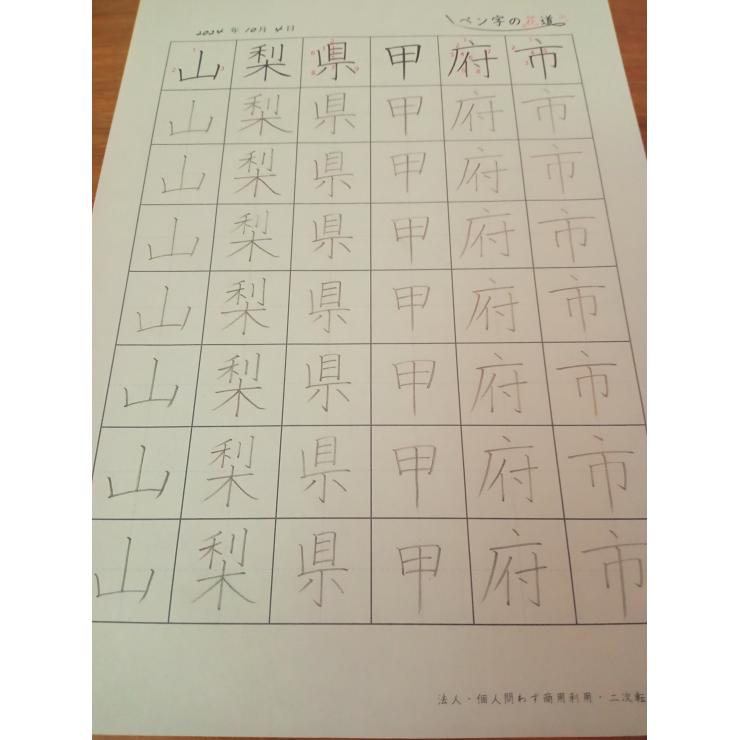 2024 年 10月 4日
ペン字の花道
山梨県甲府市
山梨県甲府市
山梨県甲府市
山梨県甲府市
山梨県甲府市
山梨県甲府市
山梨県甲府市
山梨県甲府市
法人・個人問わず商用利用・二次転